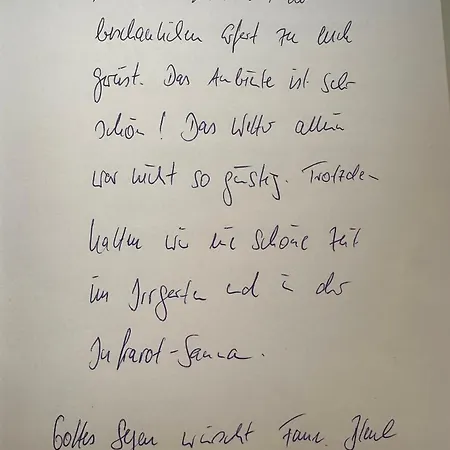 beschaulichen Ort zu euch
gereist. Das Ambiente ist sehr
schön! Das Wetter allein
war nicht so günstig. Trotzdem
hatten wir eine schöne Zeit
im Irrgarten und in der
Infrarot-Sauna.
Gottes Segen wünscht Fam.